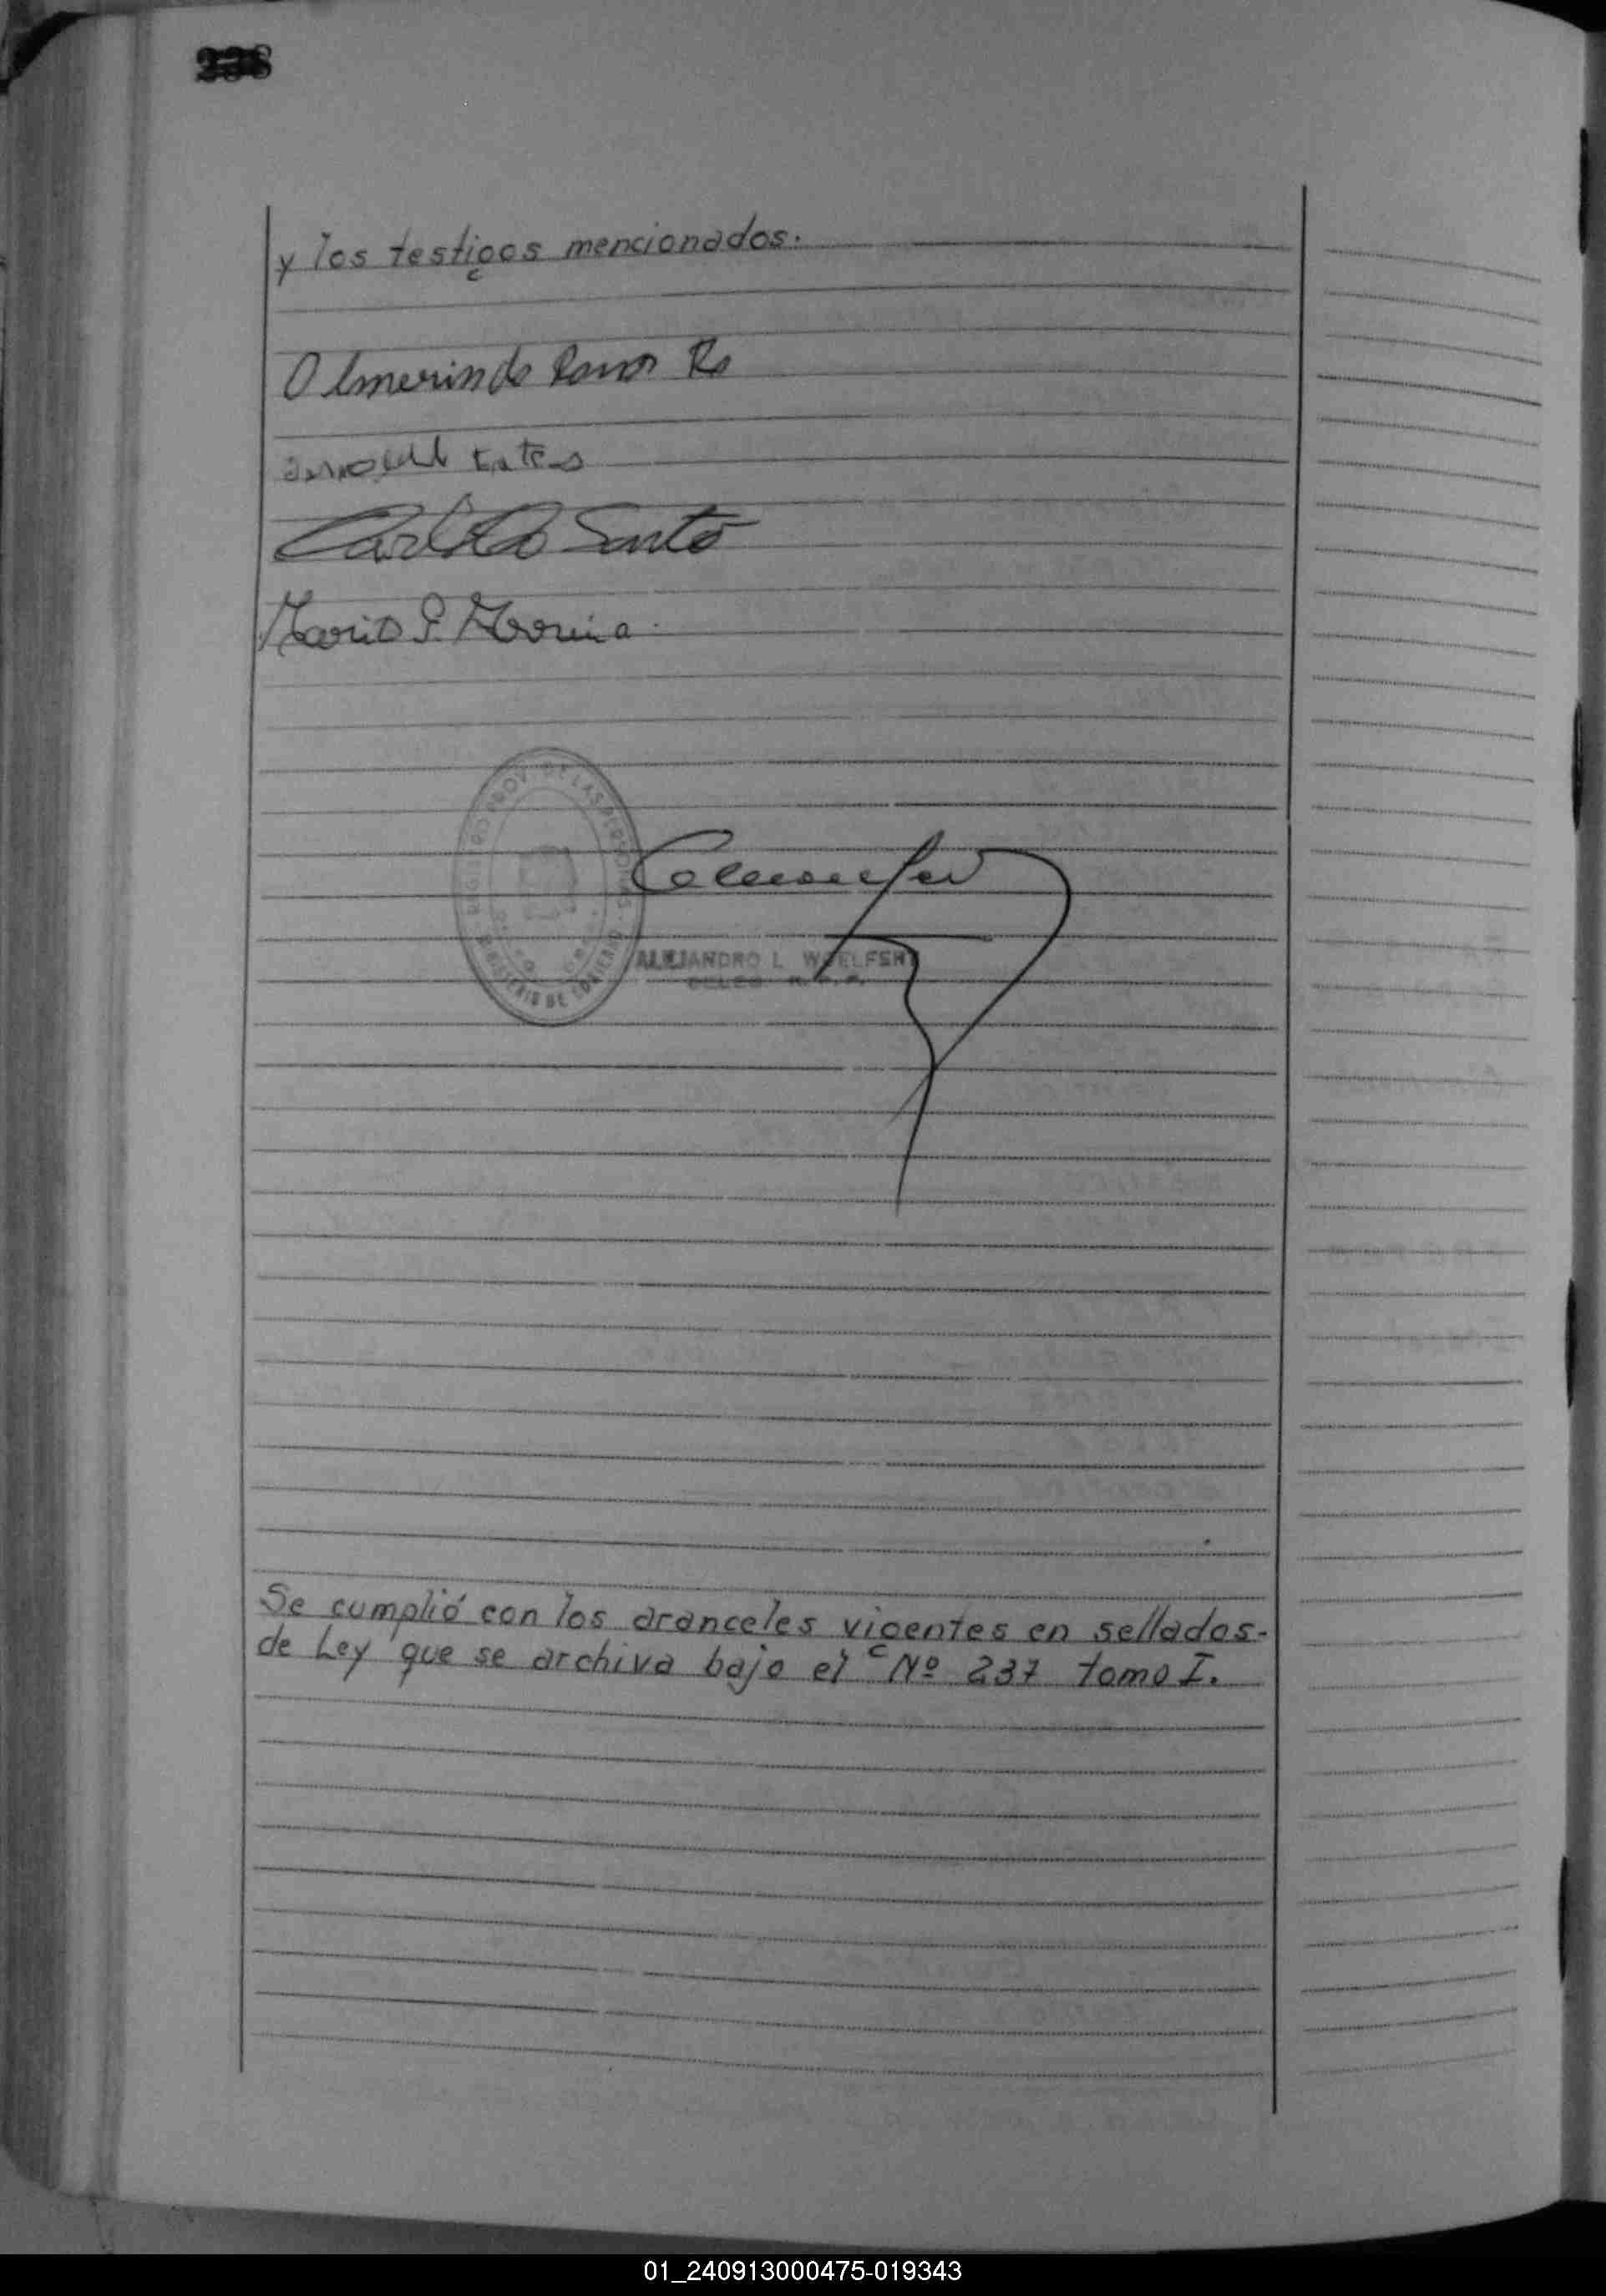 y los testigos mencionados.
Olmerindo Ramos
Santo
Mario Moreira
REGISTRO PROV. DE LAS PERSONAS
MINISTERIO DE GOBIERNO
ALEJANDRO L. WOELFERT
DELEG. R. P. P.
Se cumplió con los aranceles vigentes en sellados.
de Ley que se archiva bajo el Nº 237 tomo I.
01_240913000475-019343